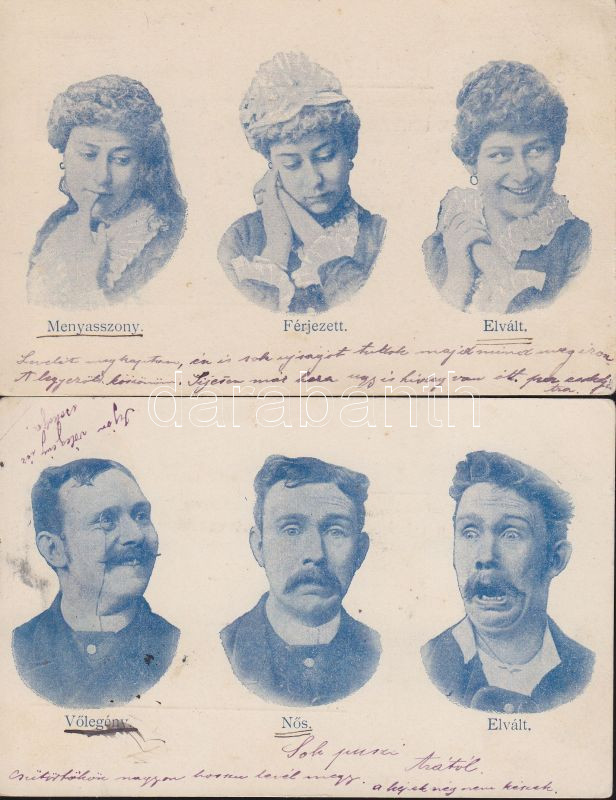 Menyasszony. Férjezett. Elvált.
Levelét megkaptam, én is sok ujságot tudok majd mind megirom
A legyezőt köszönöm. Siessen már haza ugy is hivány van itt.
darabanth
Vőlegény. Nős. Elvált.
Sok puszi
Csütörtökön nagyon hosszu levél megy. a képek még nem készek.